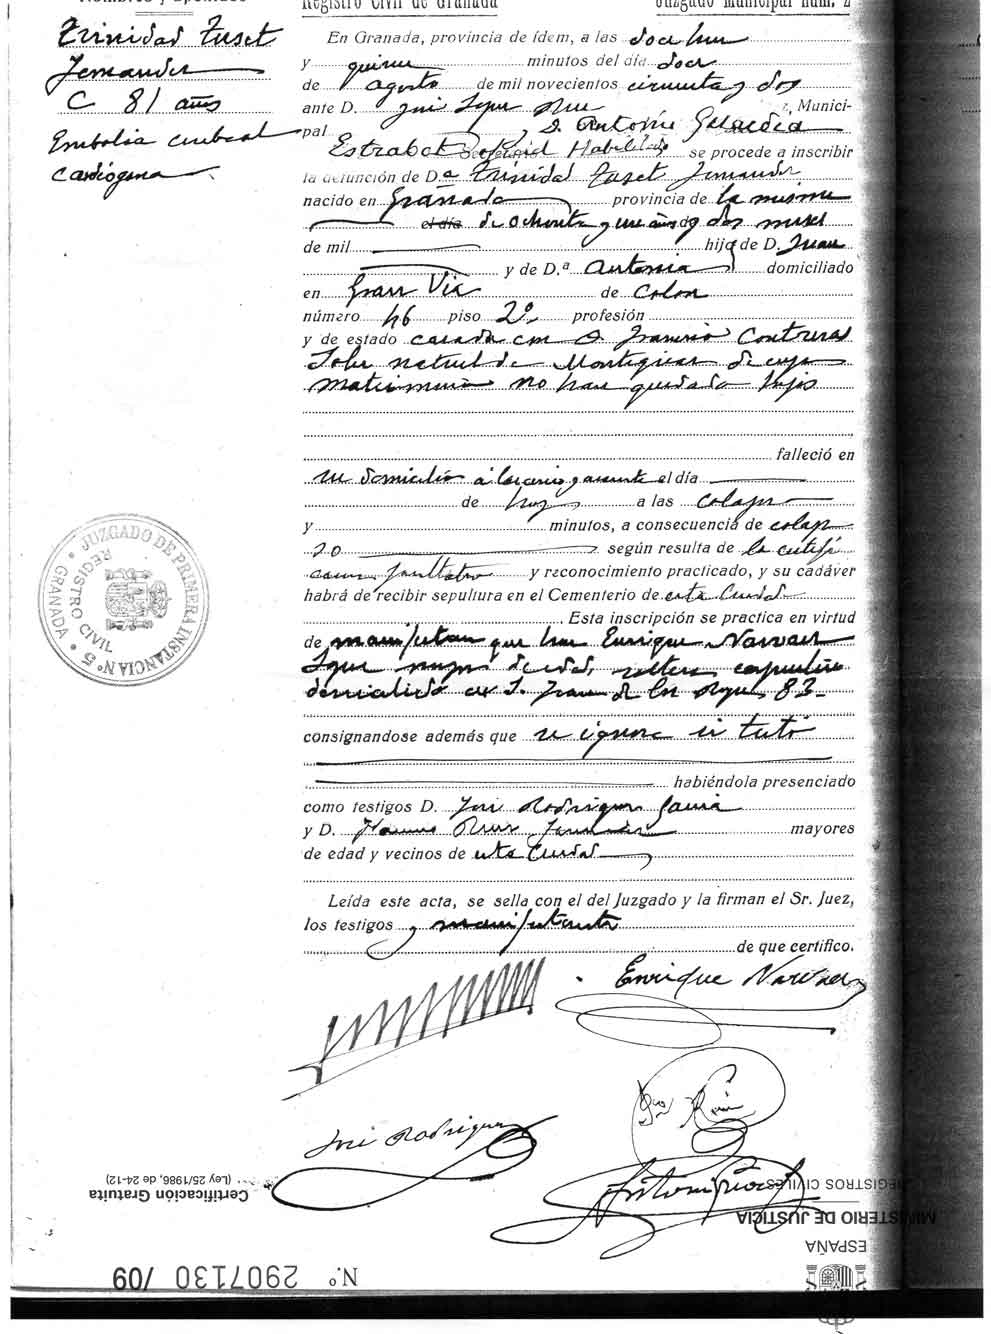 Nombres y apellidos
Trinidad Tuset
Fernandez
C 81 años
Embolia cerebral
cardiógena
Registro Civil de Granada
Juzgado Municipal núm. 2
En Granada, provincia de ídem, a las doce horas
y quince minutos del día doce
de agosto de mil novecientos cincuenta y dos
ante D. José Munici-
pal y D. Antonio Guardia
Estrabot Oficial Habilitado se procede a inscribir
la defunción de D.ª Trinidad Tuset Fernandez
nacido en Granada provincia de la misma
el día de ochenta y un años y dos meses
de mil hija de D. Juan
y de D.ª Antonia domiciliado
en Gran Vía de Colon
número 46 piso 2º profesión
y de estado casada con D. Francisco Contreras
natural de Montejicar de cuyo
matrimonio no han quedado hijos
falleció en
su domicilio a las cinco y cuarenta el día
de hoy a las colapso
y minutos, a consecuencia de colap
so según resulta de la certifi
cación facultativa y reconocimiento practicado, y su cadáver
habrá de recibir sepultura en el Cementerio de esta Ciudad
Esta inscripción se practica en virtud
de manifestacion que hace Enrique Narvaez
mayor de edad, soltero
domiciliado en S. Juan de los Reyes 83
consignandose además que se ignora si testó
habiéndola presenciado
como testigos D. José Rodriguez Garcia
y D. mayores
de edad y vecinos de esta Ciudad
Leída este acta, se sella con el del Juzgado y la firman el Sr. Juez,
los testigos y manifestante
de que certifico.
Enrique Narvaez
José Rodriguez
JUZGADO DE PRIMERA INSTANCIA Nº 5
REGISTRO CIVIL
GRANADA
Certificación Gratuita
(Ley 25/1986, de 24-12)
REGISTROS CIVILES
MINISTERIO DE JUSTICIA
ESPAÑA
N.º 2907130 /09